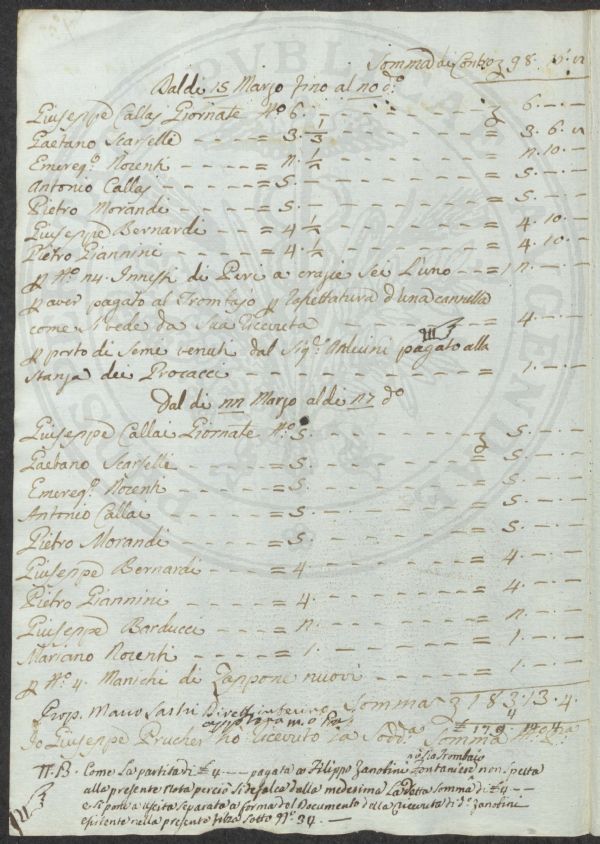 Somma di Contro 98.
Dal di 15 Marzo fino al 20 do.
Giuseppe Callai Giornate No 6. 6. — . —
Gaetano Scarselli = 3. 1/3 = 3. 6.
Emereg.º Norenti = 2. 1/2 2. 10. —
Antonio Callai = 5. 5. — . —
Pietro Morandi = 5. 5. — . —
Giuseppe Bernardi = 4 1/2 = 4. 10. —
Pietro Giannini = 4. 1/2 4. 10. —
p No 24. Innesti di Peri a crazie Sei L'uno = 12. — . —
p aver pagato al Trombajo p Rasettatura d'una cannella
come si vede da Sua Ricevuta 4. — . —
p porto di Semi venuti dal Sigr. Arduini pagato alla
Stanza dei Procacci = 1. — . —
Dal di 22 Marzo al di 27 do
Giuseppe Callai Giornate No 5. 5. — . —
Gaetano Scarselli = 5. = 5. — . —
Emereg.º Norenti = 5. = 5. — . —
Antonio Callai = 5. = 5. — . —
Pietro Morandi = 5. = 5. — . —
Giuseppe Bernardi = 4 = 4. — . —
Pietro Giannini = 4. = 4. — . —
Giuseppe Barducci = 2. = 2. — . —
Mariano Norenti = 1. = 1. — . —
p No 4. Manichi di Zappone nuovi = 1. — . —
Somma 183. 13. 4.
Io Giuseppe Prucher ho ricevuto la Sodda. Somma
N. B. Come la partita di £ 4 — pagata a Filippo Zanobini Fontaniere non spetta
o sia Trombaio
alla presente Nota perciò si defalca dalla medesima la detta Somma di £ 4 —
e si pone a uscita separata a forma del Documento della Ricevuta di do. Zanobini
esistente nella presente filza sotto No. 34. —